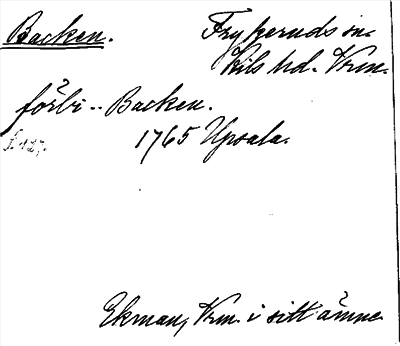 Backen. Frykeruds sn.
Kils hd. Vrm.
förbi -- Backen.
1765 Upsala.
f. 127.
Ekman, Vrm. i sitt ämne